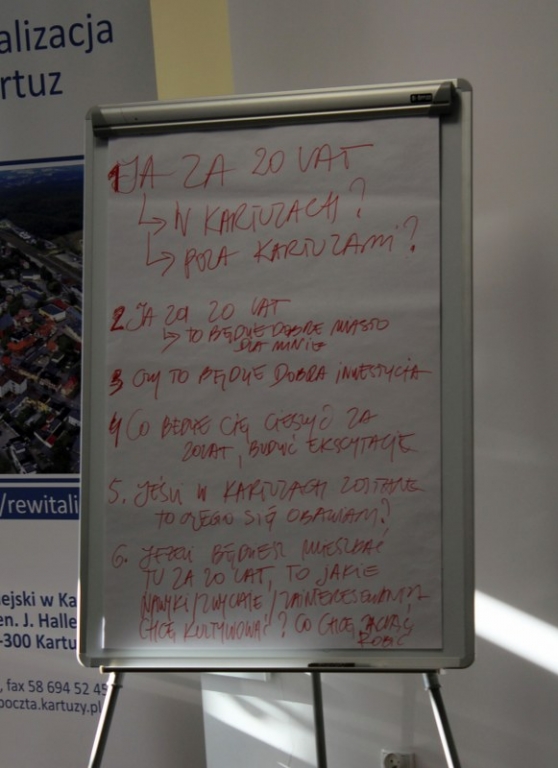 alizacja
rtuz
1 JA ZA 20 LAT
↳ W KARTUZACH?
↳ POZA KARTUZAMI?
2 JA ZA 20 LAT
↳ TO BĘDZIE DOBRE MIASTO
DLA MNIE
3 CZY TO BĘDZIE DOBRA INWESTYCJA
4 CO BĘDZIE CIĘ CIESZYĆ ZA
20 LAT, BUDZIĆ EKSCYTACJĘ
5. JEŚLI W KARTUZACH ZOSTANĘ
TO CZEGO SIĘ OBAWIAM?
6. JEŻELI BĘDZIESZ MIESZKAĆ
TU ZA 20 LAT, TO JAKIE
NAWYKI/ZWYCZAJE/ZAINTERESOWANIA
CHCĘ KULTYWOWAĆ? CO CHCĘ ZACZĄĆ
ROBIĆ
/rewitali
ejski w Ka
en. J. Halle
-300 Kartu
, fax 58 694 52 49
poczta.kartuzy.pl